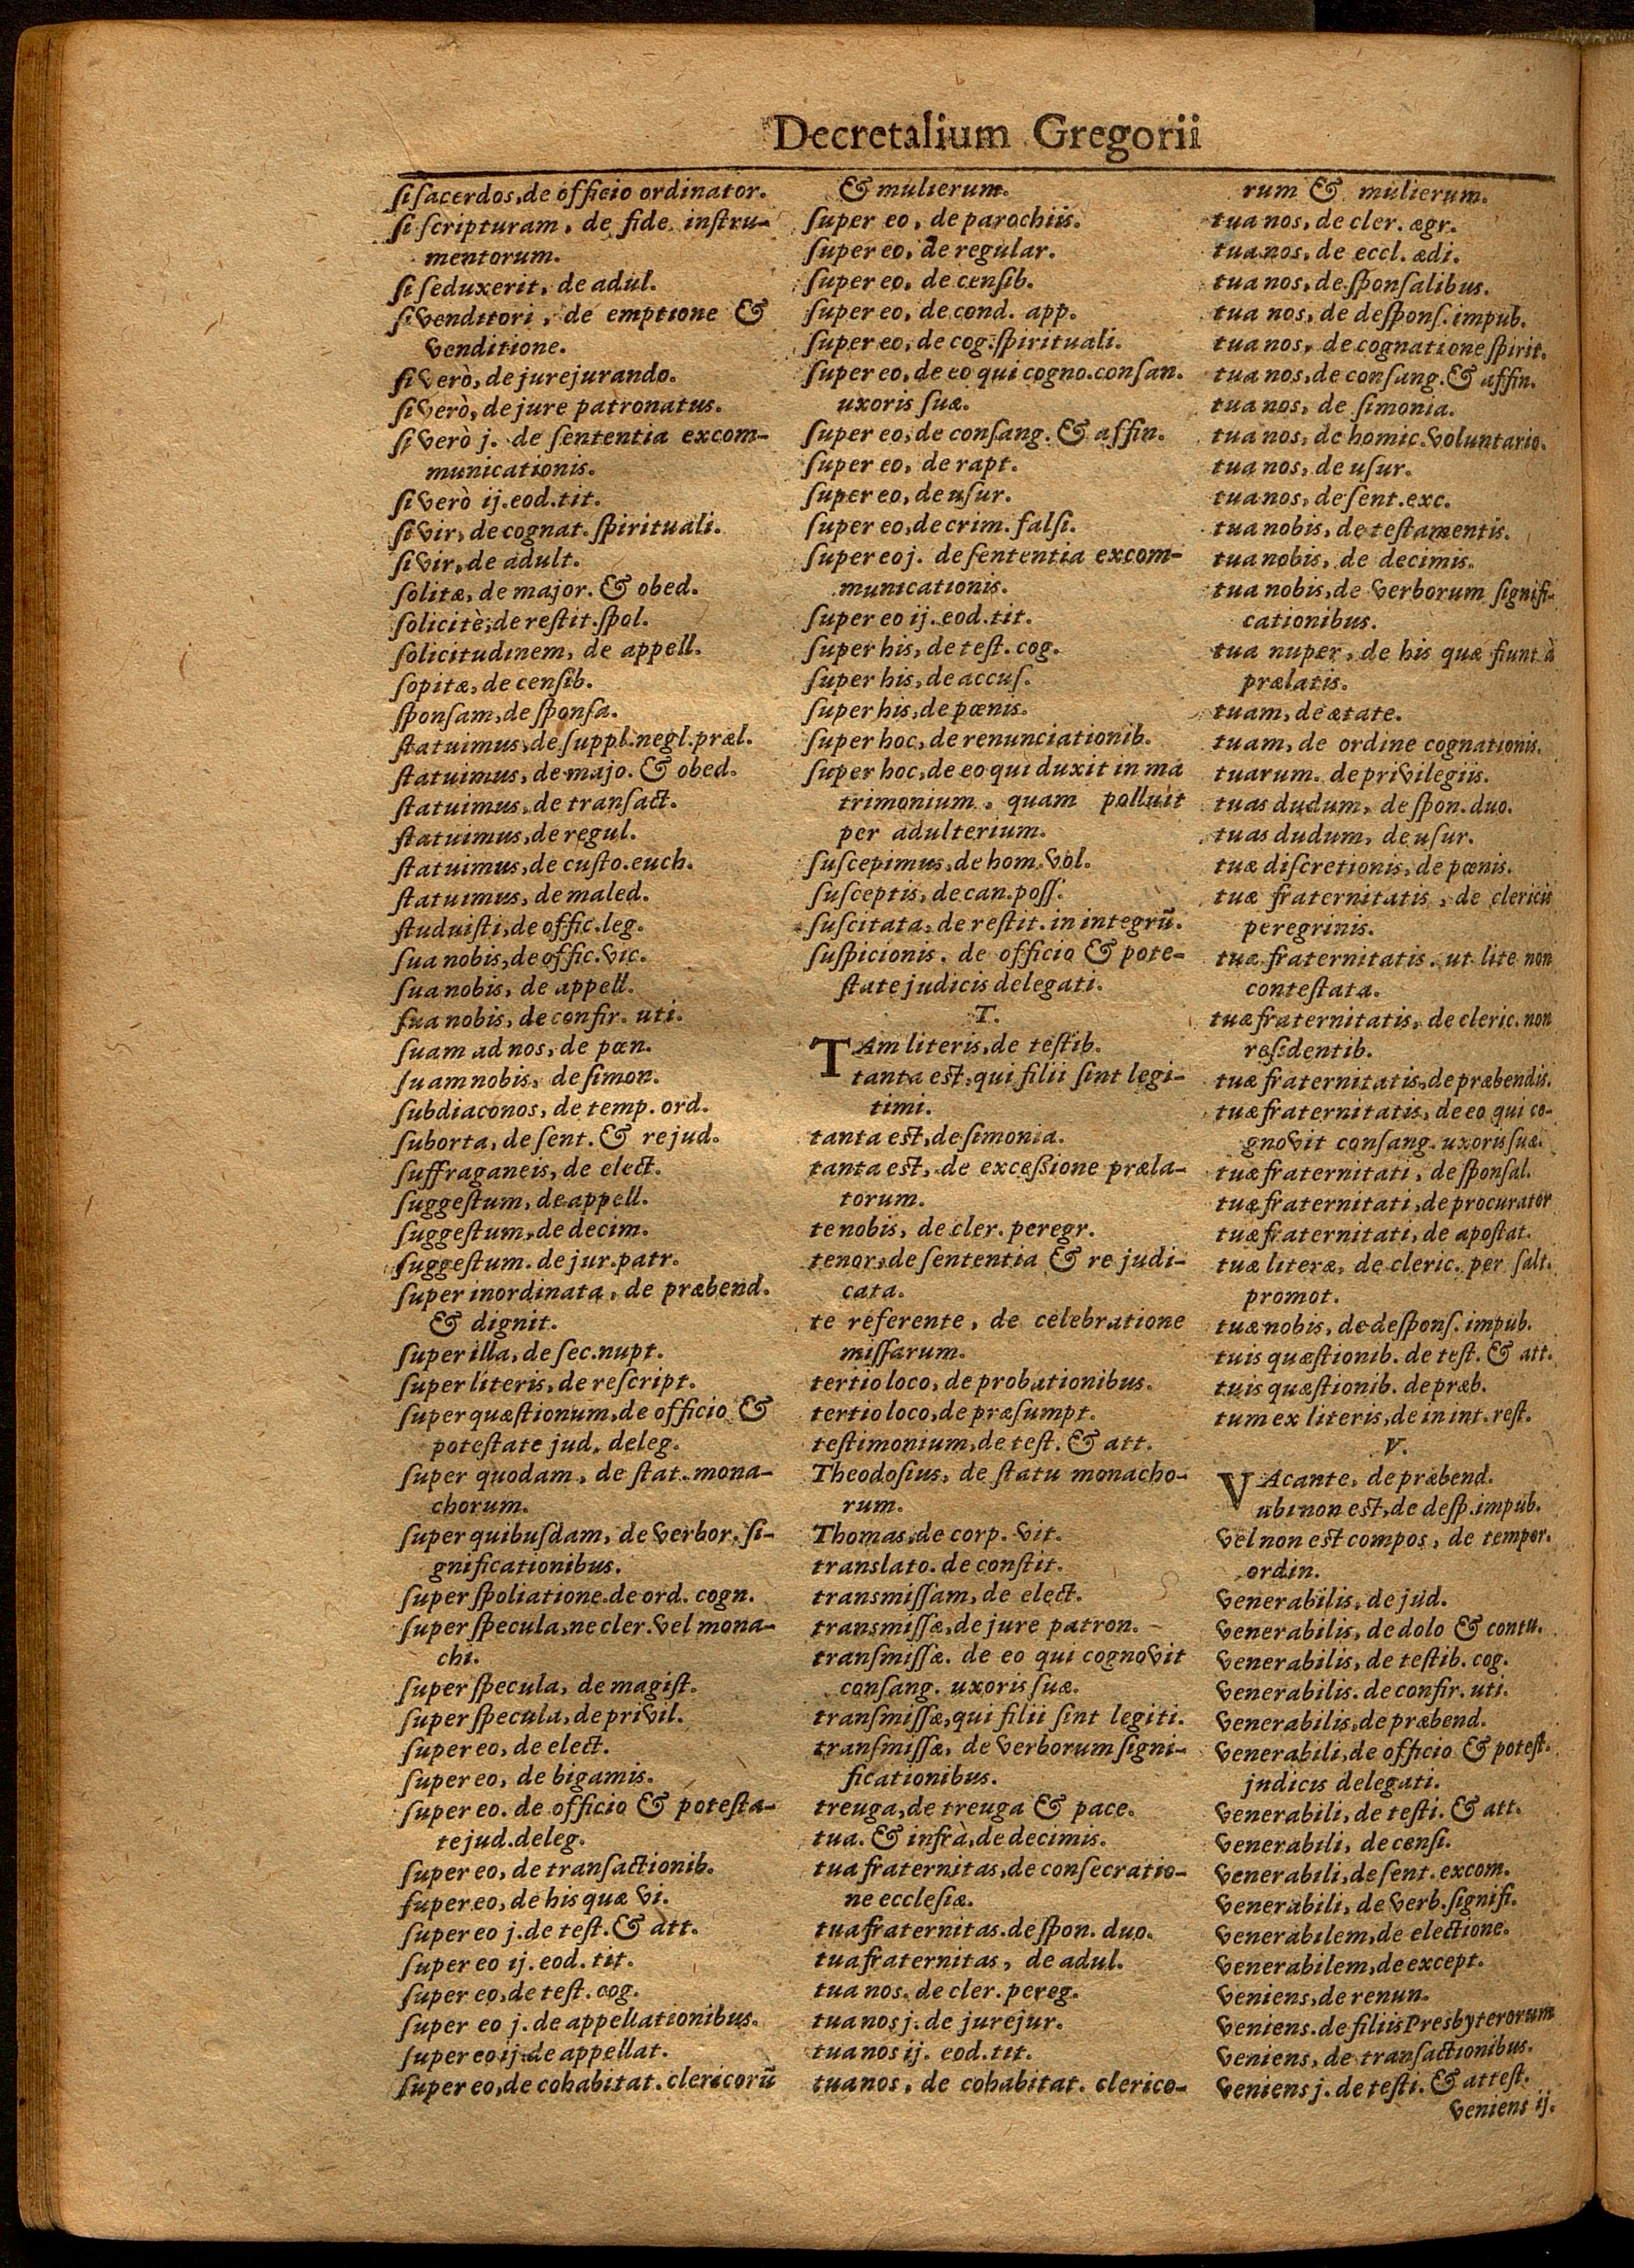 Decretalium Gregorii
ſi ſacerdos, de officio ordinator.
ſi ſcripturam, de fide inſtru-
mentorum.
ſi ſeduxerit, de adul.
ſi venditori, de emptione &
venditione.
ſi verò, de jurejurando.
ſi verò, de jure patronatus.
ſi verò j. de ſententia excom-
municationis.
ſi verò ij. eod. tit.
ſi vir, de cognat. ſpirituali.
ſi vir, de adult.
ſolitæ, de major. & obed.
ſolicitè, de reſtit. ſpol.
ſolicitudinem, de appell.
ſopitæ, de cenſib.
ſponſam, de ſponſa.
ſtatuimus, de ſuppl. negl. præl.
ſtatuimus, de majo. & obed.
ſtatuimus, de tranſact.
ſtatuimus, de regul.
ſtatuimus, de cuſto. euch.
ſtatuimus, de maled.
ſtuduiſti, de offic. leg.
ſua nobis, de offic. vic.
ſua nobis, de appell.
ſua nobis, de confir. uti.
ſuam ad nos, de pœn.
ſuam nobis, de ſimon.
ſubdiaconos, de temp. ord.
ſuborta, de ſent. & re jud.
ſuffraganeis, de elect.
ſuggeſtum, de appell.
ſuggeſtum, de decim.
ſuggeſtum. de jur. patr.
ſuper inordinata, de præbend.
& dignit.
ſuper illa, de ſec. nupt.
ſuper literis, de reſcript.
ſuper quæſtionum, de officio &
poteſtate jud. deleg.
ſuper quodam, de ſtat. mona-
chorum.
ſuper quibuſdam, de verbor. ſi-
gnificationibus.
ſuper ſpoliatione. de ord. cogn.
ſuper ſpecula, ne cler. vel mona-
chi.
ſuper ſpecula, de magiſt.
ſuper ſpecula, de privil.
ſuper eo, de elect.
ſuper eo, de bigamis.
ſuper eo. de officio & poteſta-
te jud. deleg.
ſuper eo, de tranſactionib.
ſuper eo, de his quæ vi.
ſuper eo j. de teſt. & att.
ſuper eo ij. eod. tit.
ſuper eo, de teſt. cog.
ſuper eo j. de appellationibus.
ſuper eo ij. de appellat.
ſuper eo, de cohabitat. clericorū
& mulierum.
ſuper eo, de parochiis.
ſuper eo, de regular.
ſuper eo, de cenſib.
ſuper eo, de cond. app.
ſuper eo, de cog. ſpirituali.
ſuper eo, de eo qui cogno. conſan.
uxoris ſuæ.
ſuper eo, de conſang. & affin.
ſuper eo, de rapt.
ſuper eo, de uſur.
ſuper eo, de crim. falſi.
ſuper eo j. de ſententia excom-
municationis.
ſuper eo ij. eod. tit.
ſuper his, de teſt. cog.
ſuper his, de accuſ.
ſuper his, de pœnis.
ſuper hoc, de renunciationib.
ſuper hoc, de eo qui duxit in ma
trimonium, quam polluit
per adulterium.
ſuſcepimus, de hom. vol.
ſuſceptis, de can. poſſ.
ſuſcitata, de reſtit. in integrū.
ſuſpicionis. de officio & pote-
ſtate judicis delegati.
T.
TAm literis, de teſtib.
tanta est, qui filii ſint legi-
timi.
tanta est, de ſimonia.
tanta est, de exceſſione præla-
torum.
te nobis, de cler. peregr.
tenor, de ſententia & re judi-
cata.
te referente, de celebratione
miſſarum.
tertio loco, de probationibus.
tertio loco, de præſumpt.
teſtimonium, de teſt. & att.
Theodoſius, de ſtatu monacho-
rum.
Thomas, de corp. vit.
translato. de conſtit.
tranſmiſſam, de elect.
transmiſſæ, de jure patron.
tranſmiſſæ. de eo qui cognovit
conſang. uxoris ſuæ.
tranſmiſſæ, qui filii ſint legiti.
tranſmiſſæ, de verborum ſigni-
ficationibus.
treuga, de treuga & pace.
tua. & infrà, de decimis.
tua fraternitas, de conſecratio-
ne eccleſiæ.
tua fraternitas. de ſpon. duo.
tua fraternitas, de adul.
tua nos. de cler. pereg.
tua nos j. de jurejur.
tua nos ij. eod. tit.
tua nos, de cohabitat. clerico-
rum & mulierum.
tua nos, de cler. ægr.
tua nos, de eccl. ædi.
tua nos, de ſponſalibus.
tua nos, de deſponſ. impub.
tua nos, de cognatione ſpirit.
tua nos, de conſang. & affin.
tua nos, de ſimonia.
tua nos, de homic. voluntario.
tua nos, de uſur.
tua nos, de ſent. exc.
tua nobis, de teſtamentis.
tua nobis, de decimis.
tua nobis, de verborum ſignifi-
cationibus.
tua nuper, de his quæ fiunt à
prælatis.
tuam, de ætate.
tuam, de ordine cognationis.
tuarum. de privilegiis.
tuas dudum, de ſpon. duo.
tuas dudum, de uſur.
tuæ diſcretionis, de pœnis.
tuæ fraternitatis, de clericis
peregrinis.
tuæ fraternitatis. ut lite non
conteſtata.
tuæ fraternitatis, de cleric. non
reſidentib.
tuæ fraternitatis, de præbendis.
tuæ fraternitatis, de eo qui co-
gnovit conſang. uxoris ſuæ.
tuæ fraternitati, de ſponſal.
tuæ fraternitati, de procurator
tuæ fraternitati, de apoſtat.
tuæ literæ, de cleric. per ſalt.
promot.
tuæ nobis, de deſponſ. impub.
tuis quæſtionib. de teſt. & att.
tuis quæſtionib. de præb.
tum ex literis, de in int. reſt.
V.
VAcante, de præbend.
ubi non est, de deſp. impub.
vel non est compos, de tempor.
ordin.
venerabilis, de jud.
venerabilis, de dolo & contu.
venerabilis, de teſtib. cog.
venerabilis. de confir. uti.
venerabilis, de præbend.
venerabili, de officio & poteſt.
judicis delegati.
venerabili, de teſti. & att.
venerabili, de cenſi.
venerabili, de ſent. excom.
venerabili, de verb. ſignifi.
venerabilem, de electione.
venerabilem, de except.
veniens, de renun.
veniens. de filiis Presbyterorum
veniens, de tranſactionibus.
veniens j. de teſti. & atteſt.
veniens ij.